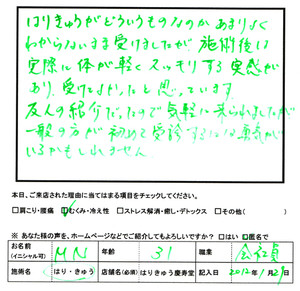 はりきゅうがどういうものなのか あまりよく
わからないまま受けましたが、施術後は
実際に体が軽くスッキリする実感が
あり、受けてよかったと思っています。
友人の紹介だったので気軽に来られましたが
一般の方が初めて受診するには勇気が
いるかもしれません
本日、ご来店された理由に当てはまる項目をチェックしてください。
□肩こり・腰痛 ☑むくみ・冷え性 □ストレス解消・癒し・デトックス □その他( )
※ あなた様の声を、ホームページなどでご紹介してもよろしいですか? □はい □匿名で
お名前 (イニシャル可) MN 年齢 31 職業 会社員
施術名 はり・きゅう 店舗名(必須) はりきゅう慶寿堂 記入日 2012年1月29日